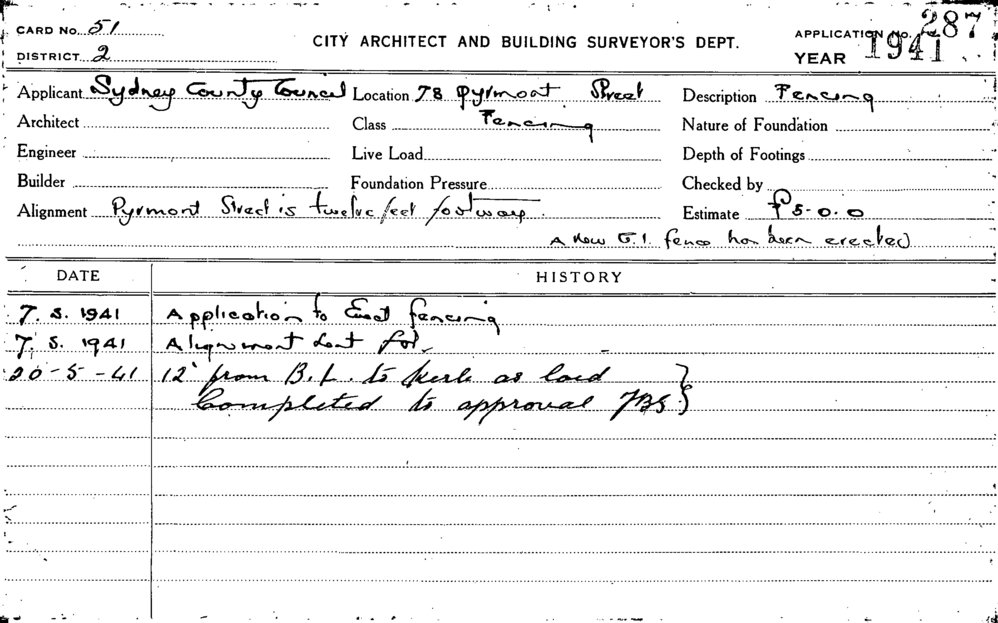 CARD No. 51
CITY ARCHITECT AND BUILDING SURVEYOR'S DEPT.
APPLICATION No. 287
DISTRICT 2
YEAR 1941
Applicant Sydney County Council Location 78 Pyrmont Street Description Fencing
Architect Class Fencing Nature of Foundation
Engineer Live Load Depth of Footings
Builder Foundation Pressure Checked by
Alignment Pyrmont Street is twelve feet footway. Estimate £5-0.0
A new G.I. fence has been erected
DATE HISTORY
7. 5. 1941 Application to Erect fencing
7. 5. 1941 Alignment sent for
20-5-41 12' from B.L. to kerb as laid
Completed to approval